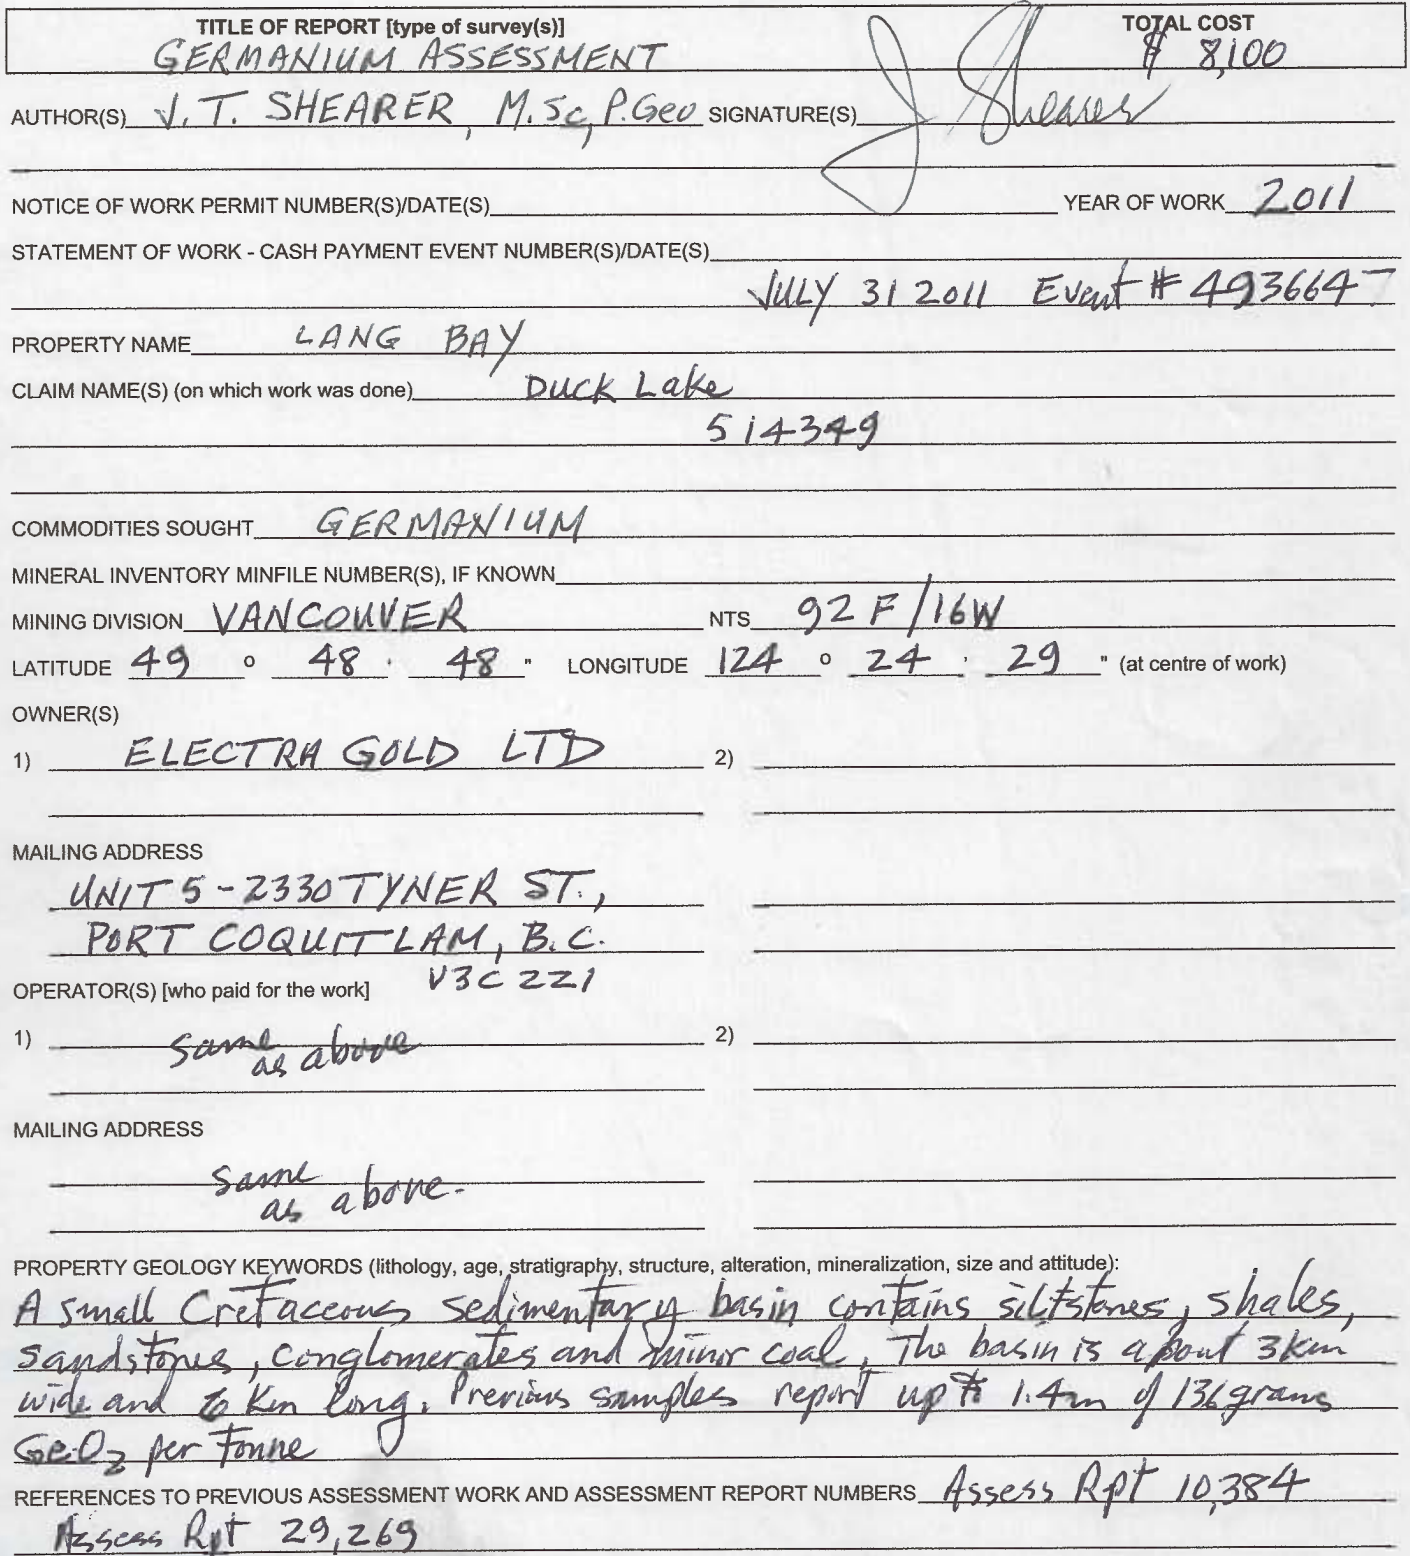 TITLE OF REPORT [type of survey(s)] TOTAL COST
GERMANIUM ASSESSMENT $ 8,100
AUTHOR(S) J. T. SHEARER, M.Sc, P.Geo SIGNATURE(S) J Shearer
NOTICE OF WORK PERMIT NUMBER(S)/DATE(S) YEAR OF WORK 2011
STATEMENT OF WORK - CASH PAYMENT EVENT NUMBER(S)/DATE(S)
JULY 31 2011 Event # 4936647
PROPERTY NAME LANG BAY
CLAIM NAME(S) (on which work was done) Duck Lake
514349
COMMODITIES SOUGHT GERMANIUM
MINERAL INVENTORY MINFILE NUMBER(S), IF KNOWN
MINING DIVISION VANCOUVER NTS 92 F/16W
LATITUDE 49 o 48 ' 48 " LONGITUDE 124 o 24 ' 29 " (at centre of work)
OWNER(S)
1) ELECTRA GOLD LTD 2)
MAILING ADDRESS
UNIT 5 - 2330 TYNER ST.,
PORT COQUITLAM, B.C.
V3C 2Z1
OPERATOR(S) [who paid for the work]
1) same as above 2)
MAILING ADDRESS
same
as above.
PROPERTY GEOLOGY KEYWORDS (lithology, age, stratigraphy, structure, alteration, mineralization, size and attitude):
A small Cretaceous sedimentary basin contains siltstones, shales,
sandstones, conglomerates and minor coal. The basin is about 3 km
wide and km long. Previous samples report up to 1.4m of 136 grams
GeO2 per tonne
REFERENCES TO PREVIOUS ASSESSMENT WORK AND ASSESSMENT REPORT NUMBERS Assess Rpt 10,384
Assess Rpt 29,269